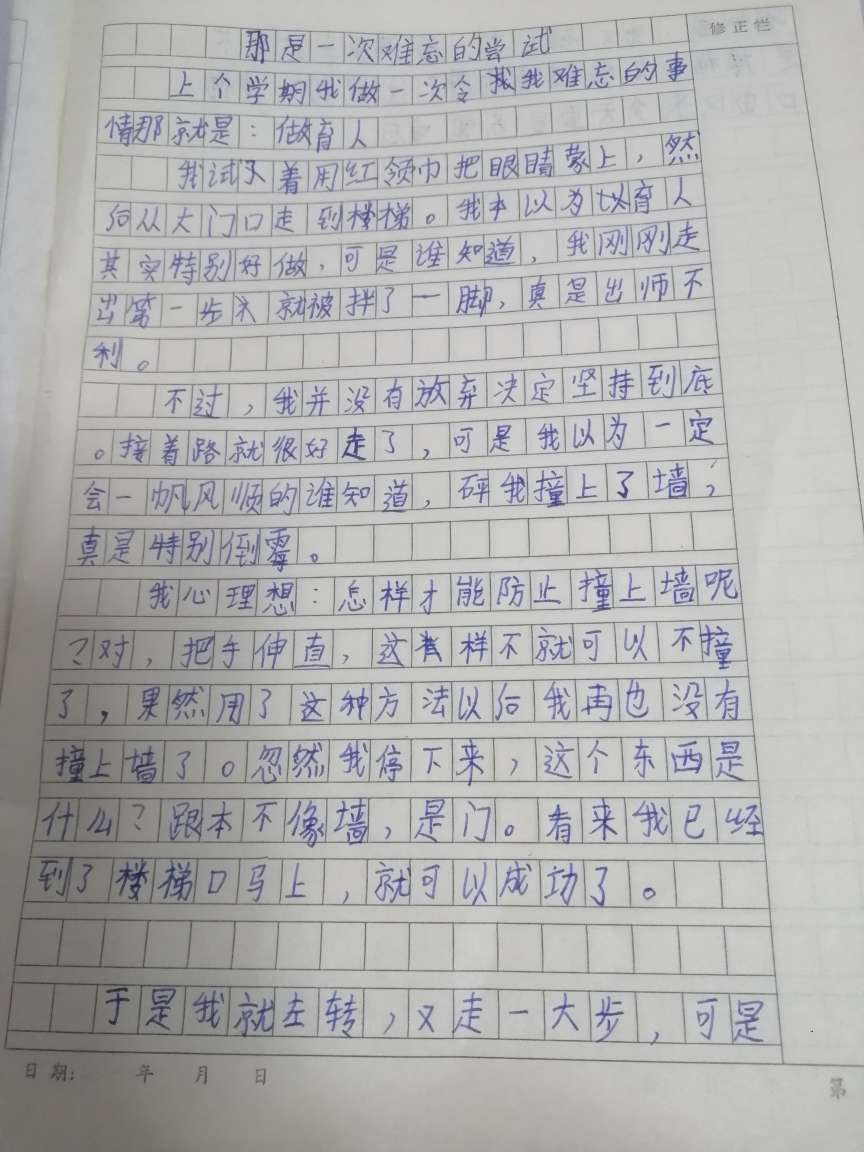 修正栏
那是一次难忘的尝试
上个学期我做一次令我难忘的事
情那就是：做盲人
我试着用红领巾把眼睛蒙上，然
后从大门口走到楼梯。我本以为以盲人
其实特别好做，可是谁知道，我刚刚走
出第一步就被拌了一脚，真是出师不
利。
不过，我并没有放弃决定坚持到底
。接着路就很好走了，可是我以为一定
会一帆风顺的谁知道，砰我撞上了墙，
真是特别倒霉。
我心理想：怎样才能防止撞上墙呢
？对，把手伸直，这样不就可以不撞
了，果然用了这种方法以后我再也没有
撞上墙了。忽然我停下来，这个东西是
什么？跟本不像墙，是门。看来我已经
到了楼梯口马上，就可以成功了。
于是我就左转，又走一大步，可是
日期： 年 月 日
第